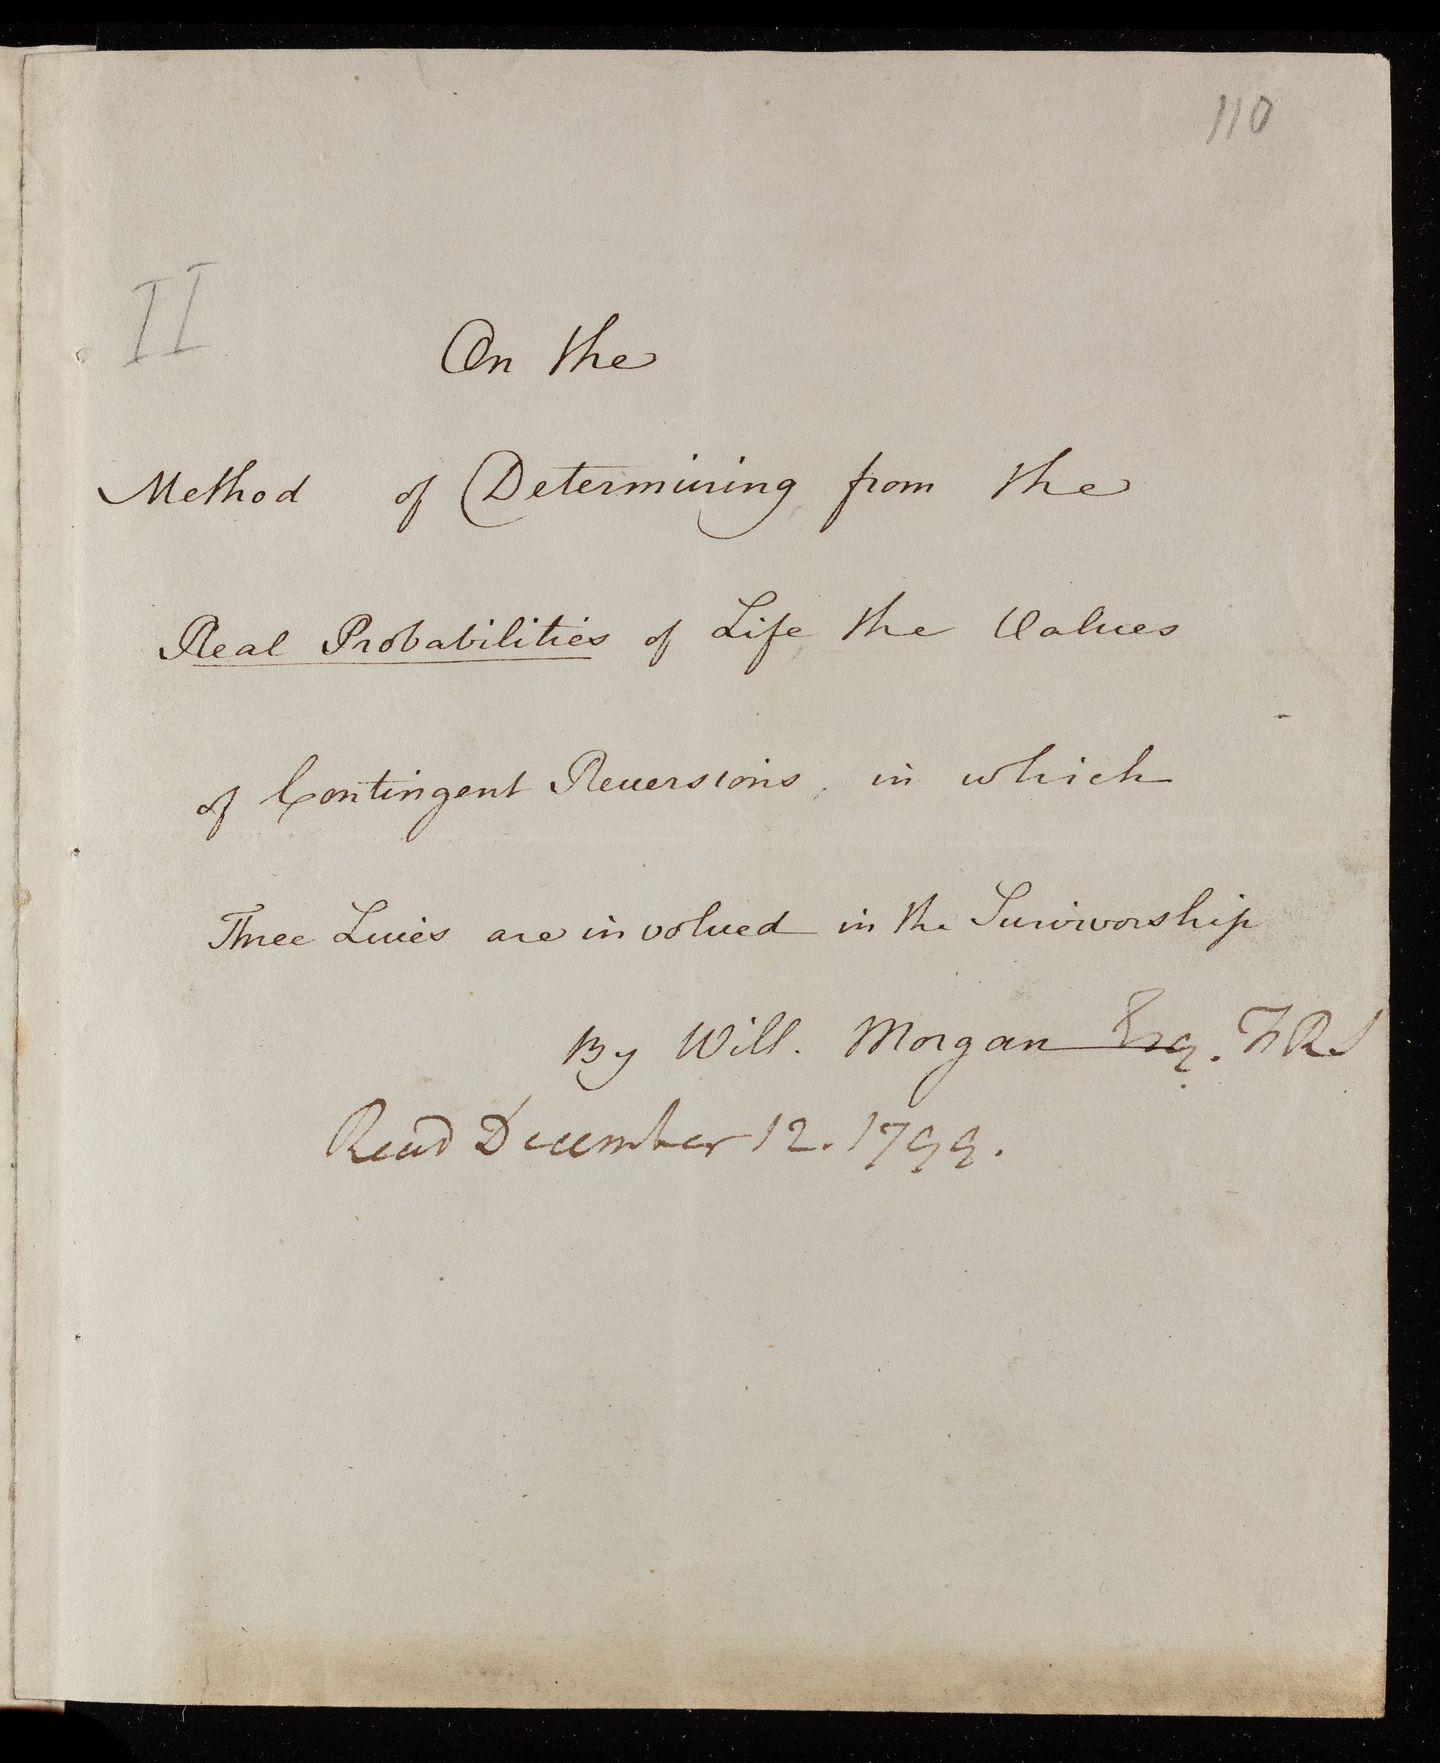 110
II
On the
Method of Determining from the
Real Probabilities of Life the Values
of Contingent Reversions in which
Three Lives are involved in the Survivorship
By Will. Morgan Esq. FRS
Read December 12. 1799.